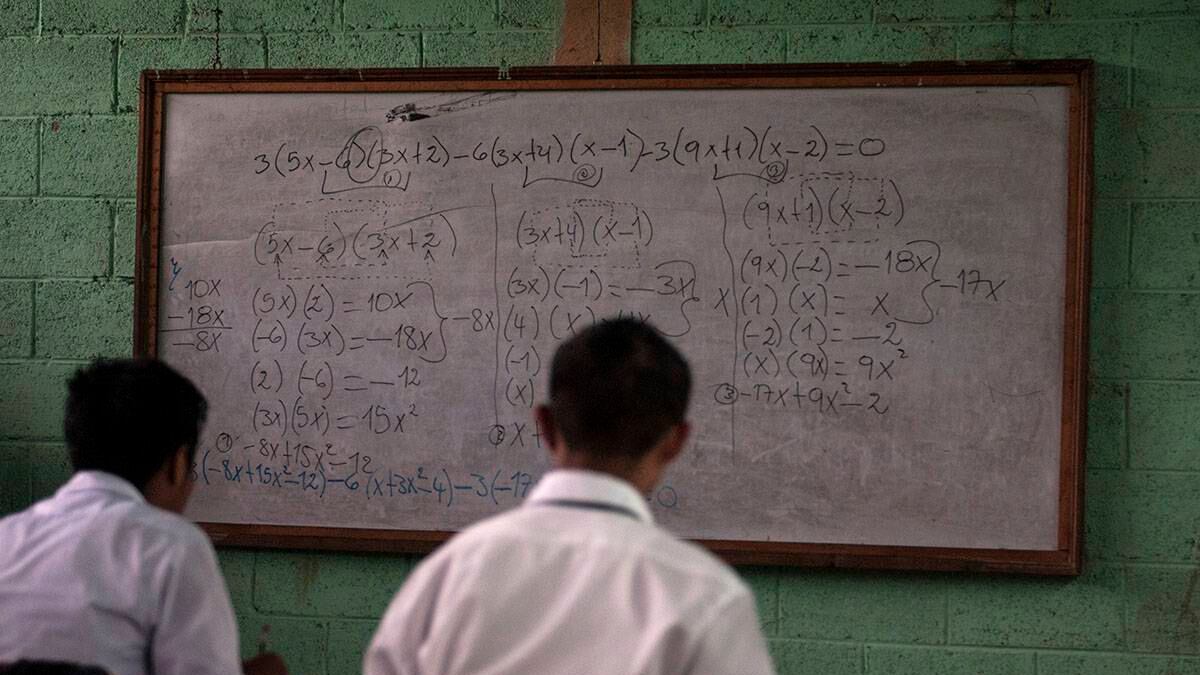 3(5x-6)(3x+2)-6(3x+4)(x-1)-3(9x+1)(x-2)=0
① ② ③
(5x-6)(3x+2)
10x
-18x
-8x
(5x)(2)=10x
(-6)(3x)=-18x
-8x
(2)(-6)=-12
(3x)(5x)=15x²
① -8x+15x²-12
(3x+4)(x-1)
(3x)(-1)=-3x
x
(4)(x)
(-1)
(x)
② x+
(9x+1)(x-2)
(9x)(-2)=-18x
(1)(x)=x
-17x
(-2)(1)=-2
(x)(9x)=9x²
③ -17x+9x²-2
3(-8x+15x²-12)-6(x+3x²-4)-3(-17 =0